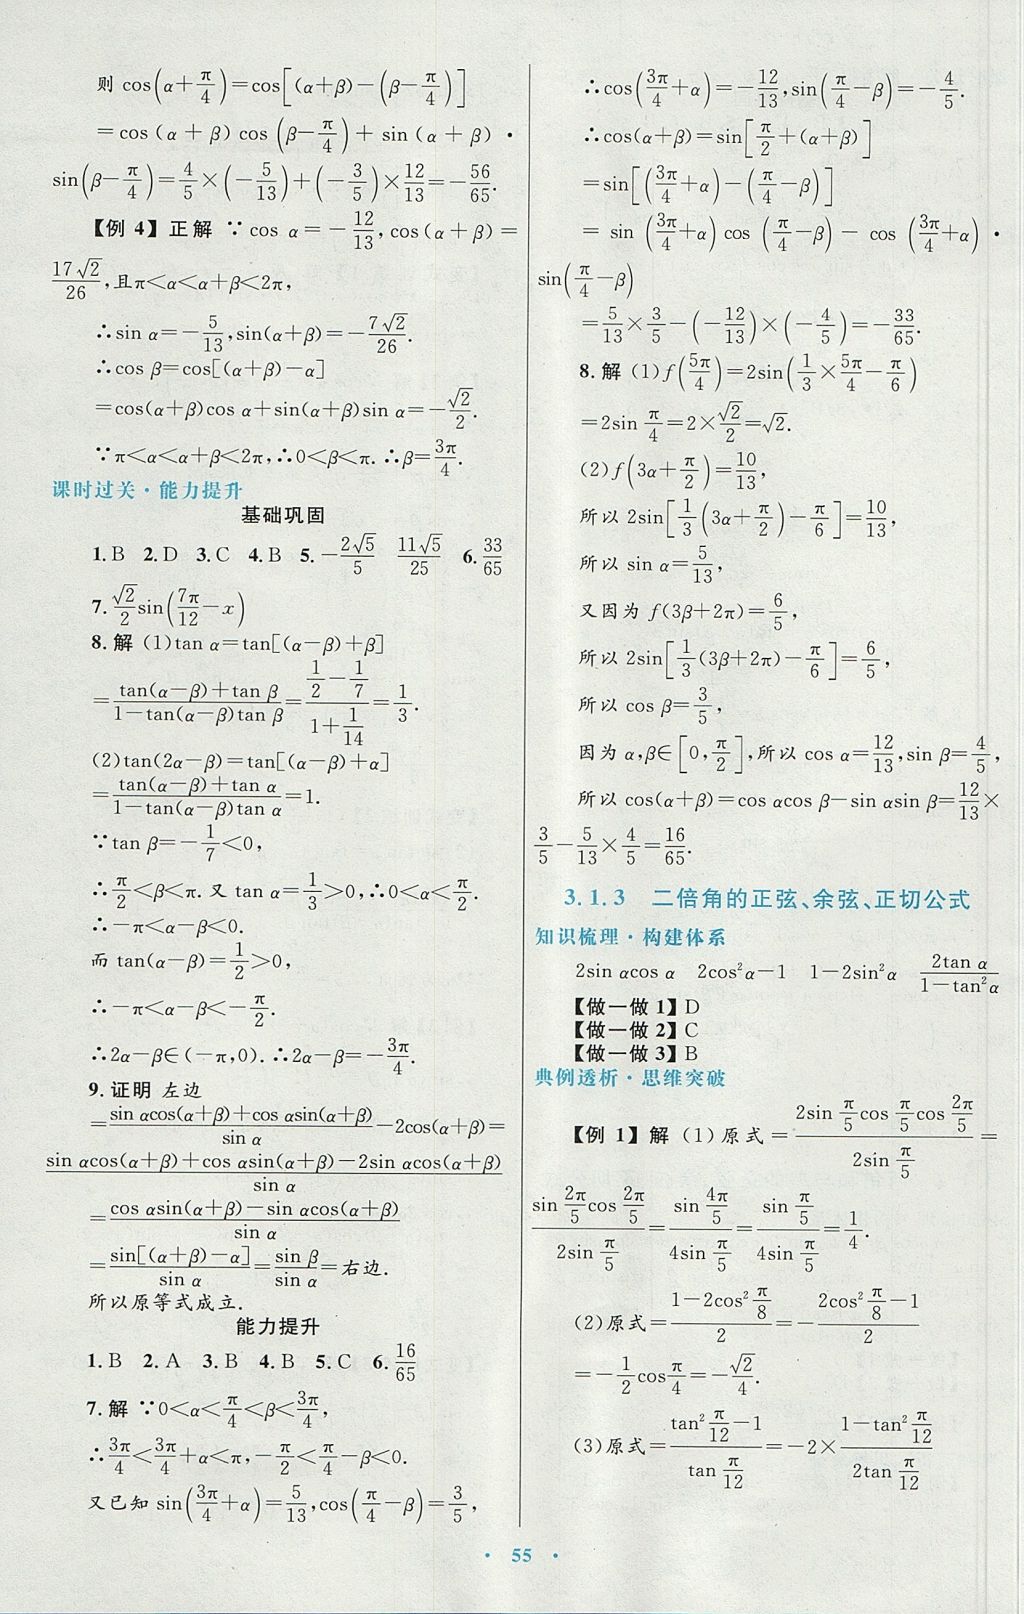 则 cos(α+π/4)=cos[(α+β)-(β-π/4)]
=cos(α+β)cos(β-π/4)+sin(α+β)·
sin(β-π/4)=4/5×(-5/13)+(-3/5)×12/13=-56/65.
【例 4】正解 ∵cos α=-12/13,cos(α+β)=
17√2/26,且π<α<α+β<2π,
∴sin α=-5/13,sin(α+β)=-7√2/26.
∴cos β=cos[(α+β)-α]
=cos(α+β)cos α+sin(α+β)sin α=-√2/2.
∵π<α<α+β<2π,∴0<β<π.∴β=3π/4.
课时过关·能力提升
基础巩固
1.B 2.D 3.C 4.B 5.-2√5/5 11√5/25 6.33/65
7.√2/2 sin(7π/12-x)
8.解 (1)tan α=tan[(α-β)+β]
=(tan(α-β)+tan β)/(1-tan(α-β)tan β)=(1/2-1/7)/(1+1/14)=1/3.
(2)tan(2α-β)=tan[(α-β)+α]
=(tan(α-β)+tan α)/(1-tan(α-β)tan α)=1.
∵tan β=-1/7<0,
∴π/2<β<π.又 tan α=1/3>0,∴0<α<π/2.
∴-π<α-β<0.
而 tan(α-β)=1/2>0,
∴-π<α-β<-π/2.
∴2α-β∈(-π,0).∴2α-β=-3π/4.
9.证明 左边
=(sin αcos(α+β)+cos αsin(α+β))/sin α-2cos(α+β)=
(sin αcos(α+β)+cos αsin(α+β)-2sin αcos(α+β))/sin α
=(cos αsin(α+β)-sin αcos(α+β))/sin α
=sin[(α+β)-α]/sin α=sin β/sin α=右边.
所以原等式成立.
能力提升
1.B 2.A 3.B 4.B 5.C 6.16/65
7.解 ∵0<α<π/4<β<3π/4,
∴3π/4<3π/4+α<π,-π/2<π/4-β<0.
又已知 sin(3π/4+α)=5/13,cos(π/4-β)=3/5,
∴cos(3π/4+α)=-12/13,sin(π/4-β)=-4/5.
∴cos(α+β)=sin[π/2+(α+β)]
=sin[(3π/4+α)-(π/4-β)]
=sin(3π/4+α)cos(π/4-β)-cos(3π/4+α)·
sin(π/4-β)
=5/13×3/5-(-12/13)×(-4/5)=-33/65.
8.解 (1)f(5π/4)=2sin(1/3×5π/4-π/6)
=2sin π/4=2×√2/2=√2.
(2)f(3α+π/2)=10/13,
所以 2sin[1/3(3α+π/2)-π/6]=10/13,
所以 sin α=5/13,
又因为 f(3β+2π)=6/5,
所以 2sin[1/3(3β+2π)-π/6]=6/5,
所以 cos β=3/5,
因为 α,β∈[0,π/2],所以 cos α=12/13,sin β=4/5,
所以 cos(α+β)=cos αcos β-sin αsin β=12/13×
3/5-5/13×4/5=16/65.
3.1.3 二倍角的正弦、余弦、正切公式
知识梳理·构建体系
2sin αcos α 2cos²α-1 1-2sin²α 2tan α/(1-tan²α)
【做一做 1】D
【做一做 2】C
【做一做 3】B
典例透析·思维突破
【例 1】解 (1)原式=(2sin π/5 cos π/5 cos 2π/5)/(2sin π/5)=
(sin 2π/5 cos 2π/5)/(2sin π/5)=(sin 4π/5)/(4sin π/5)=(sin π/5)/(4sin π/5)=1/4.
(2)原式=(1-2cos² π/8)/2=-(2cos² π/8-1)/2
=-1/2 cos π/4=-√2/4.
(3)原式=(tan² π/12-1)/(tan π/12)=-2×(1-tan² π/12)/(2tan π/12)
· 55 ·